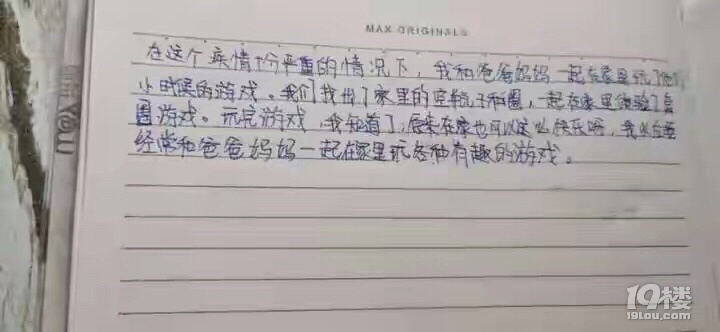 MAX ORIGINALS
在这个疫情十分严重的情况下,我和爸爸妈妈一起在家里玩了他们
小时候的游戏。我们找出了家里的空瓶子和圈,一起在家里体验了套
圈游戏。玩完游戏,我知道了,原来在家也可以这么快乐呀,我以后要
经常和爸爸妈妈一起在家里玩各种有趣的游戏。
YOU
19楼
19LOU.COM